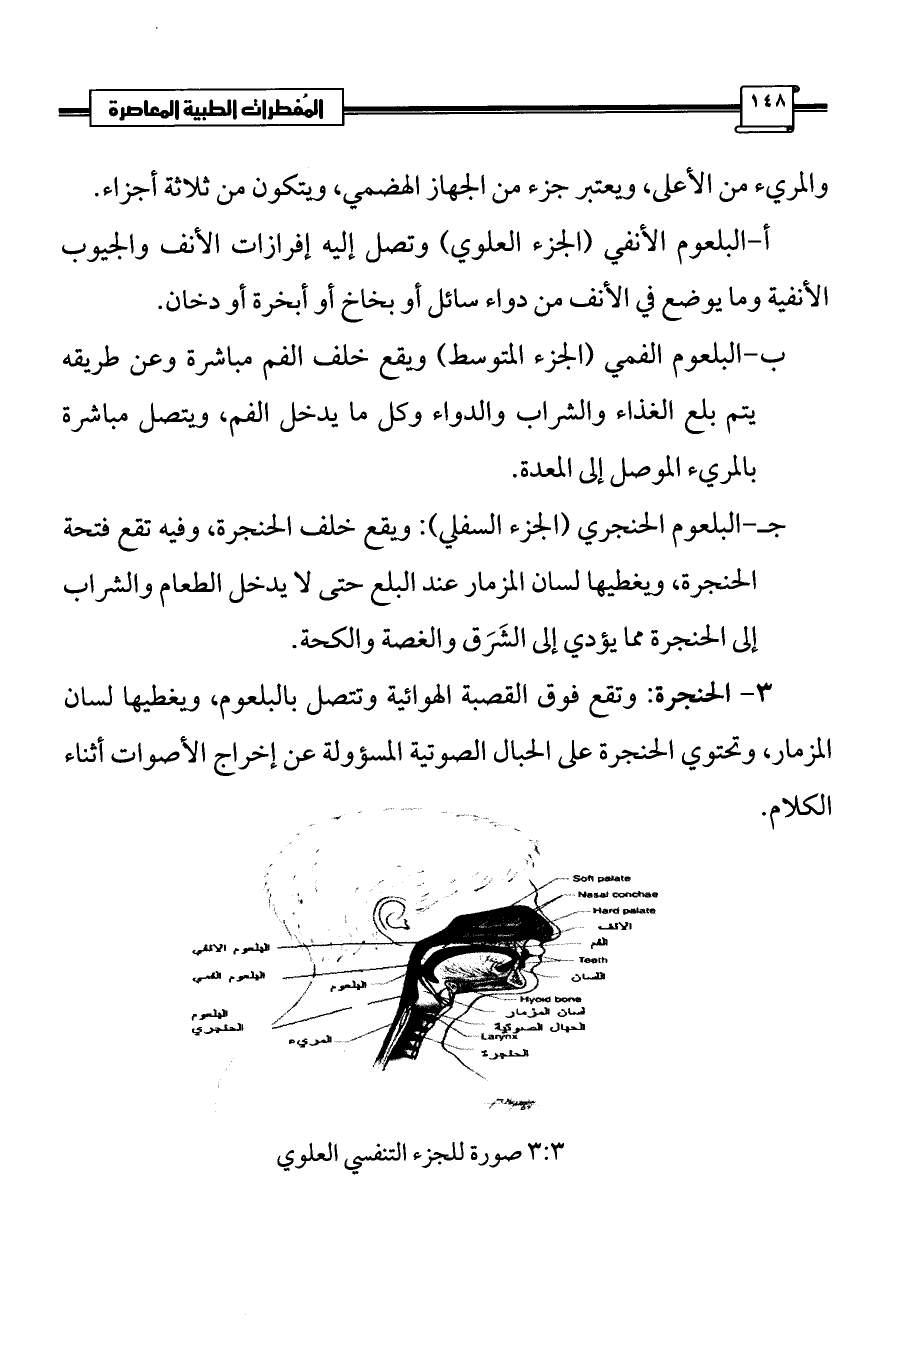 ١٤٨
المُفطرات الطبية المعاصرة
والمريء من الأعلى، ويعتبر جزء من الجهاز الهضمي، ويتكون من ثلاثة أجزاء.
أ-البلعوم الأنفي (الجزء العلوي) وتصل إليه إفرازات الأنف والجيوب
الأنفية وما يوضع في الأنف من دواء سائل أو بخاخ أو أبخرة أو دخان.
ب-البلعوم الفمي (الجزء المتوسط) ويقع خلف الفم مباشرة وعن طريقه
يتم بلع الغذاء والشراب والدواء وكل ما يدخل الفم، ويتصل مباشرة
بالمريء الموصل إلى المعدة.
جـ-البلعوم الحنجري (الجزء السفلي): ويقع خلف الحنجرة، وفيه تقع فتحة
الحنجرة، ويغطيها لسان المزمار عند البلع حتى لا يدخل الطعام والشراب
إلى الحنجرة مما يؤدي إلى الشَرَق والغصة والكحة.
٣- الحنجرة: وتقع فوق القصبة الهوائية وتتصل بالبلعوم، ويغطيها لسان
المزمار، وتحتوي الحنجرة على الحبال الصوتية المسؤولة عن إخراج الأصوات أثناء
الكلام.
Soft palate
Nasal conchae
Hard palate
الأنف
الفم
Teeth
اللسان
Hyoid bone
لسان المزمار
الحبال الصوتية
Larynx
الحنجرة
البلعوم الانفي
البلعوم الفمي
البلعوم
البلعوم
الحنجري
المريء
٣:٣ صورة للجزء التنفسي العلوي